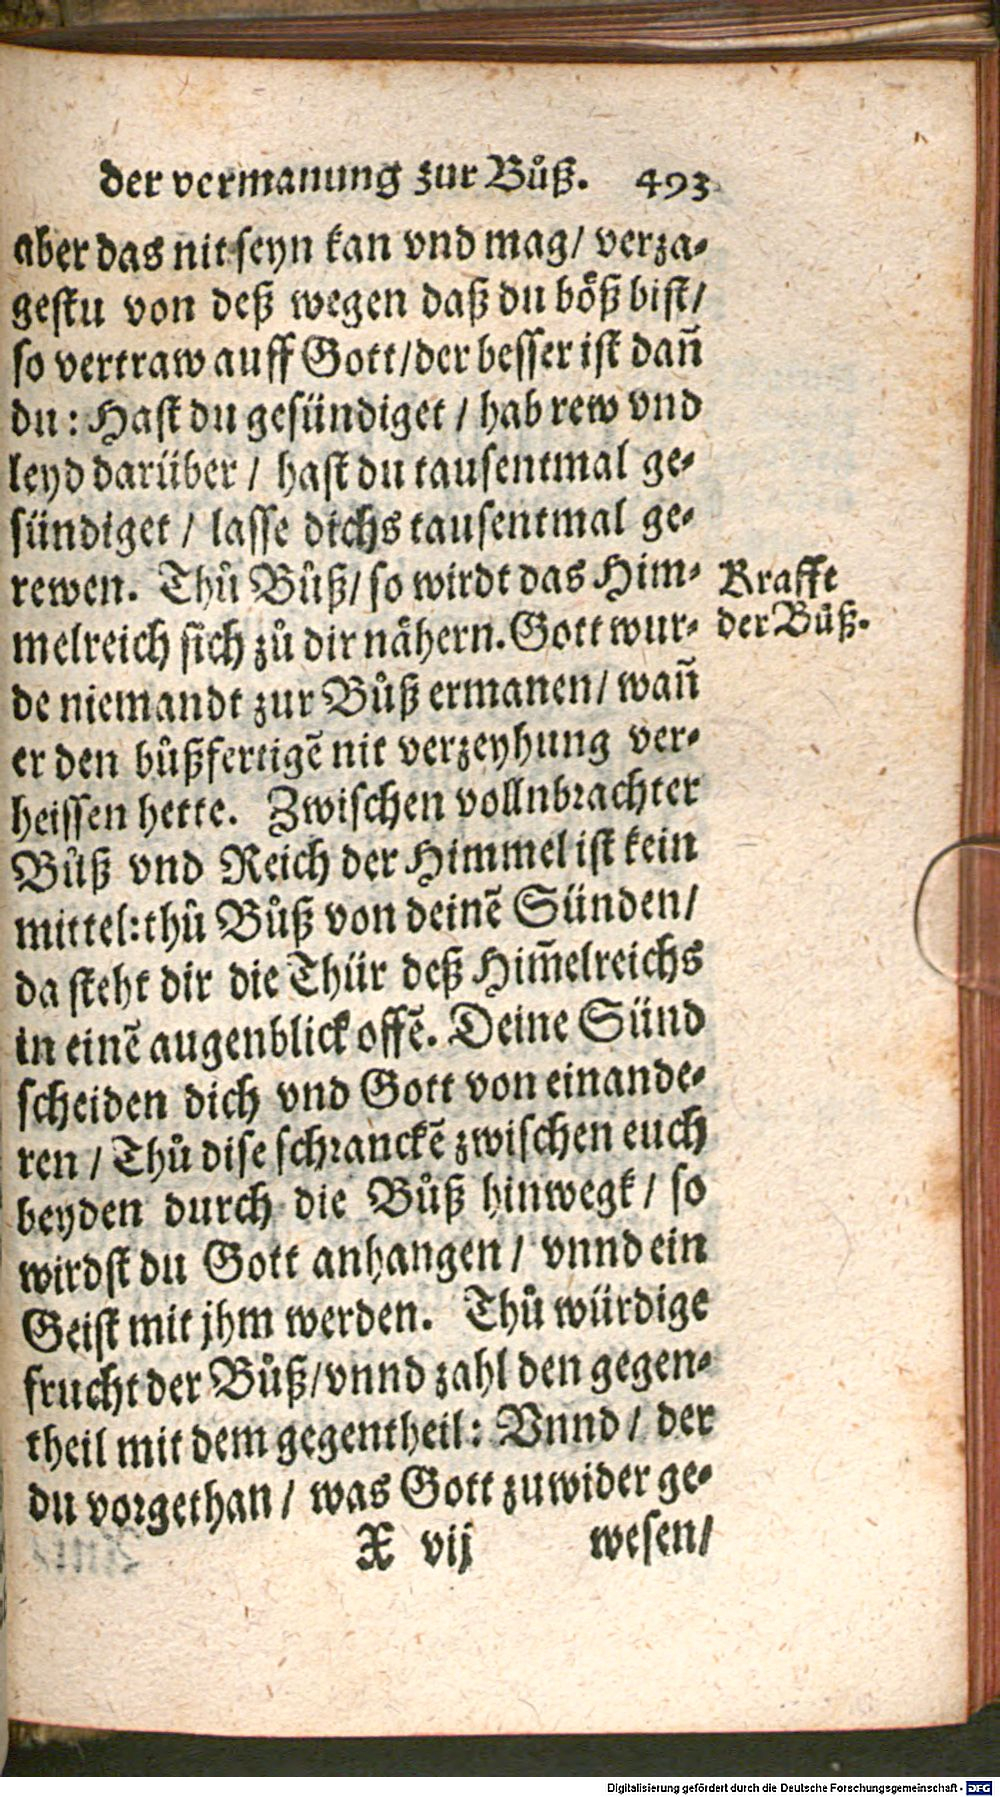 der vermanung zur Bůß. 493
aber das nit seyn kan vnd mag/ verza-
gestu von deß wegen daß du böß bist/
so vertraw auff Gott/der besser ist dañ
du: Hast du gesündiget / hab rew vnd
leyd darüber / hast du tausentmal ge-
sündiget / lasse dichs tausentmal ge-
rewen. Thů Bůß/ so wirdt das Him-
Krafft
melreich sich zů dir nähern. Gott wur-
der Bůß.
de niemandt zur Bůß ermanen/ wañ
er den bůßfertigẽ nit verzeyhung ver-
heissen hette. Zwischen vollnbrachter
Bůß vnd Reich der Himmel ist kein
mittel: thů Bůß von deinẽ Sünden/
da steht dir die Thür deß Him̃elreichs
in einẽ augenblick offẽ. Deine Sünd
scheiden dich vnd Gott von einande-
ren / Thů dise schranckẽ zwischen euch
beyden durch die Bůß hinwegk / so
wirdst du Gott anhangen / vnnd ein
Geist mit jhm werden. Thů würdige
frucht der Bůß/vnnd zahl den gegen-
theil mit dem gegentheil: Vnnd / der
du vorgethan / was Gott zuwider ge-
X vij wesen/
Digitalisierung gefördert durch die Deutsche Forschungsgemeinschaft - DFG